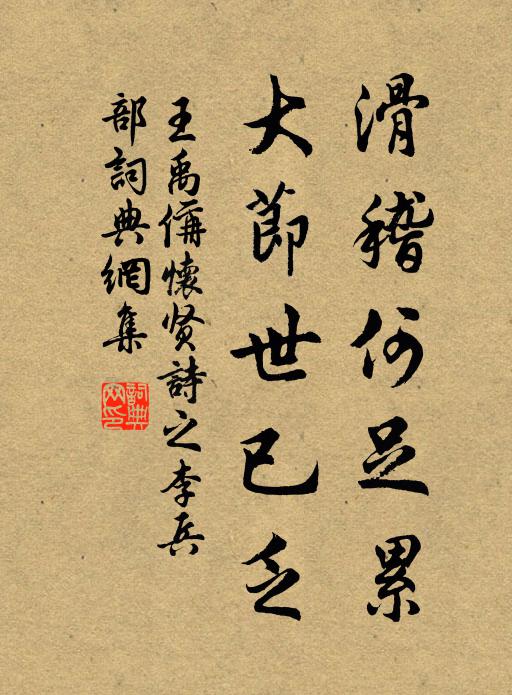 滑稽何足累
大節世已乏
王禹偁懷賢詩之李兵
部詞典網集
詞典網印